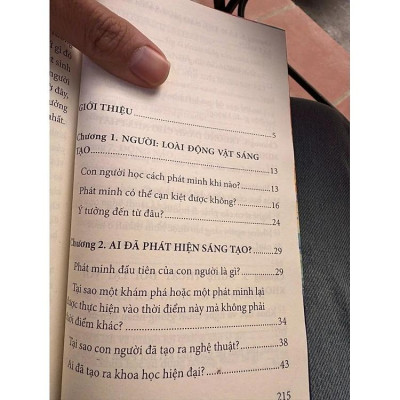 gì đó
sinh
người
đây,
tưởng
nhất.
GIỚI THIỆU 5
Chương 1. NGƯỜI: LOÀI ĐỘNG VẬT SÁNG
TẠO 13
Con người học cách phát minh khi nào? 13
Phát minh có thể cạn kiệt được không? 16
Ý tưởng đến từ đâu? 24
Chương 2. AI ĐÃ PHÁT HIỆN SÁNG TẠO? 29
Phát minh đầu tiên của con người là gì? 29
Tại sao một khám phá hoặc một phát minh lại
được thực hiện vào thời điểm này mà không phải
thời điểm khác? 34
Tại sao con người đã tạo ra nghệ thuật? 38
Ai đã tạo ra khoa học hiện đại? 43
215